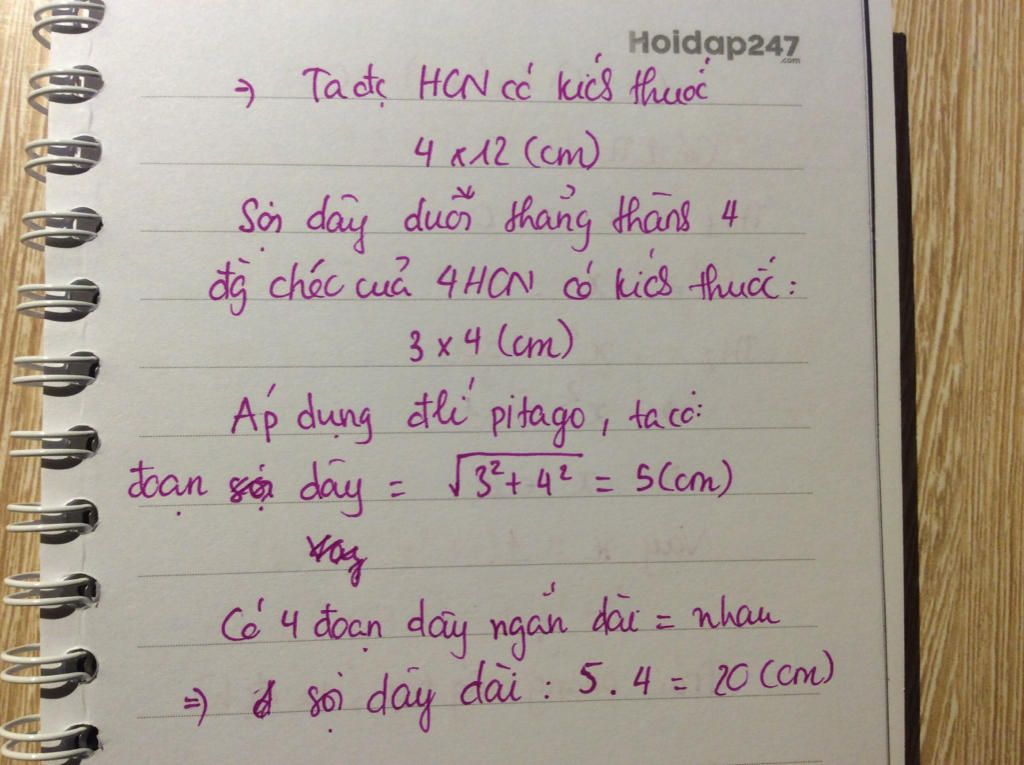 Hoidap247
.com
=> Ta đc HCN có kích thước
4 x 12 (cm)
Sợi dây duỗi thẳng thành 4
đg chéc cuả 4 HCN có kích thước:
3 x 4 (cm)
Áp dụng đ lí pitago, ta có:
đoạn dây = √3² + 4² = 5 (cm)
Có 4 đoạn dây ngắn dài = nhau
=> sợi dây dài : 5 . 4 = 20 (cm)